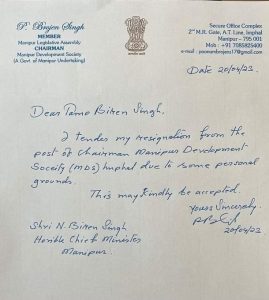 P. Brojen Singh
MEMBER
Manipur Legislative Assembly
CHAIRMAN
Manipur Development Society
(A Govt. of Manipur Undertaking)
Secure Office Complex
2nd M.R. Gate, A.T. Line, Imphal
Manipur - 795 001
Mob : +91 7085825400
e-mail : paonambrojens17@gmail.com
Date 20/04/23
Dear Tamo Biren Singh,
I tender my resignation from the
post of Chairman Manipur Development
Soceity (MDS) Imphal due to some personal
grounds.
This may kindly be accepted.
Yours Sincerely,
20/04/23
Shri N. Biren Singh
Hon'ble Chief Minister
Manipur.